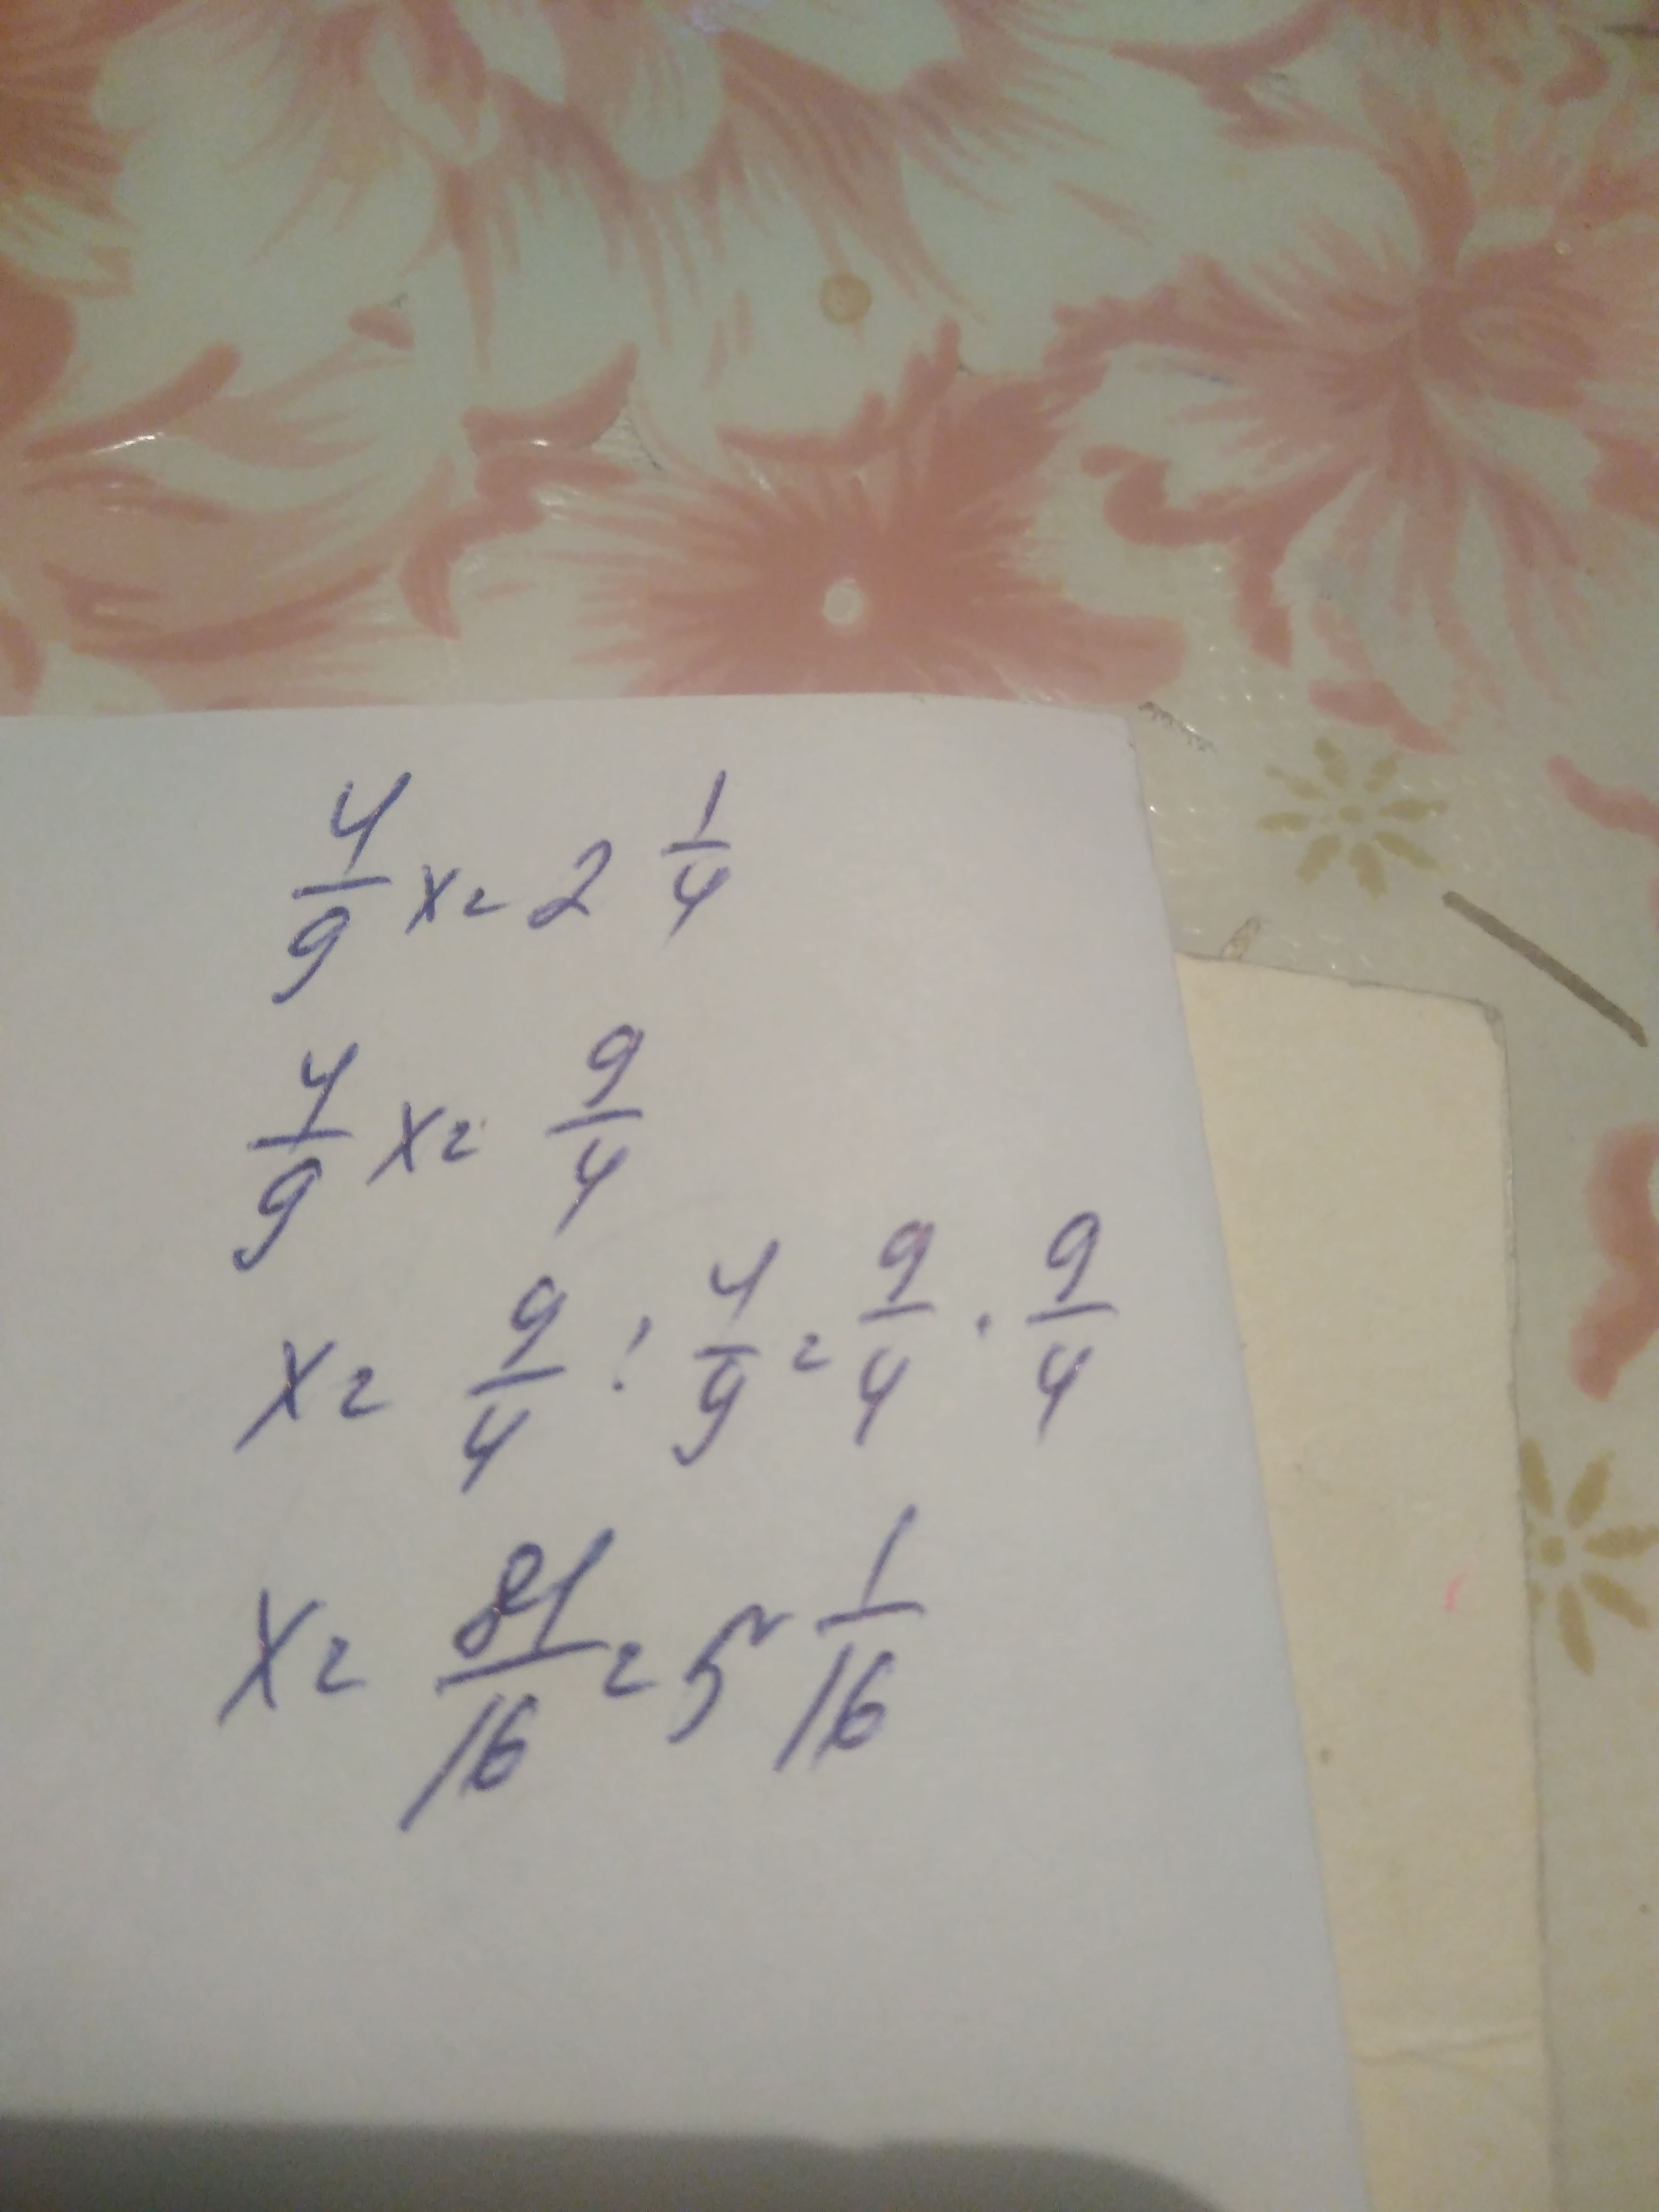 4/9 x = 2 1/4
4/9 x = 9/4
x = 9/4 : 4/9 = 9/4 · 9/4
x = 81/16 = 5 1/16